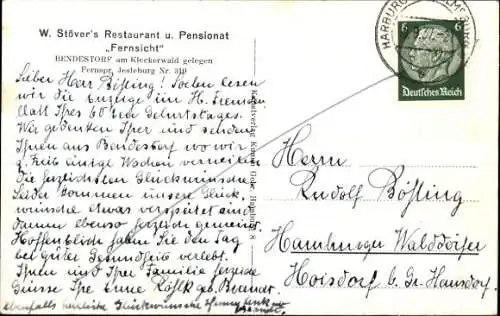 W. Stöver's Restaurant u. Pensionat
„Fernsicht"
BENDESTORF am Kleckerwald gelegen
Fernspr. Jesteburg Nr. 319
Lieber Herr Bößling! Soeben lesen
wir die Anzeige im H. Fremden
blatt Ihres 60ten Geburtstages.
Wir gedenken Ihrer und senden
Ihnen aus Bendestorf wo wir
z. Zeit einige Wochen verweilen
die herzlichsten Glückwünsche.
Leider kommen unsere Glück
wünsche etwas verspätet sind
darum ebenso herzlich gemeint
Hoffentlich haben Sie den Tag
bei guter Gesundheit verlebt.
Ihnen und Ihrer Familie herzliche
Grüsse Ihre Anne geb. Brandt.
ebenfalls herzliche Glückwünsche
HARBURG
6
6
Deutsches Reich
Herrn
Rudolf Bößling
Hamburger Walddörfer
Hoisdorf b. Gr. Hansdorf.